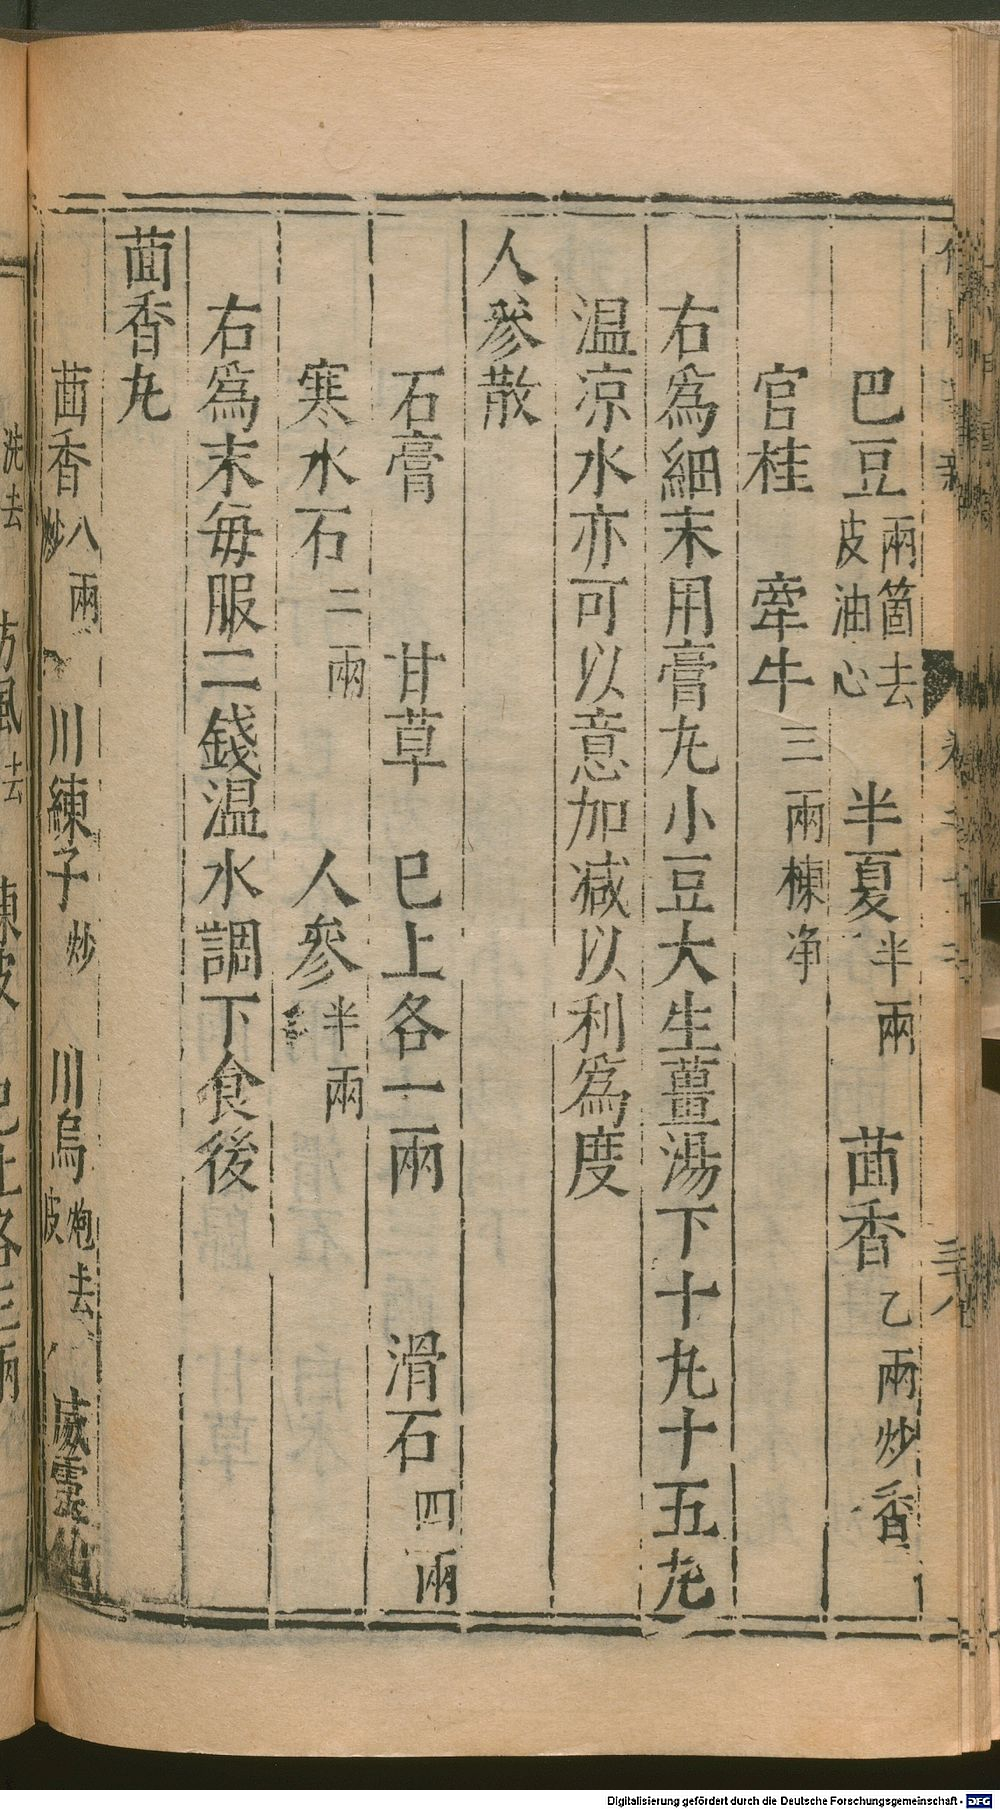 巴豆兩箇去皮油心 半夏半兩 茴香乙兩炒香
官桂 牽牛三兩棟净
右爲細末用膏丸小豆大生薑湯下十丸十五丸
温凉水亦可以意加减以利爲度
人參散
石膏 甘草 巳上各一兩 滑石四兩
寒水石二兩 人參半兩
右爲末每服二錢温水調下食後
茴香丸
茴香八兩炒 川練子炒 川烏炮去皮 威靈仙
Digitalisierung gefördert durch die Deutsche Forschungsgemeinschaft - DFG